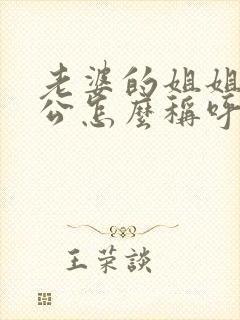 老婆的姐姐
公怎麼稱呼
王荣談